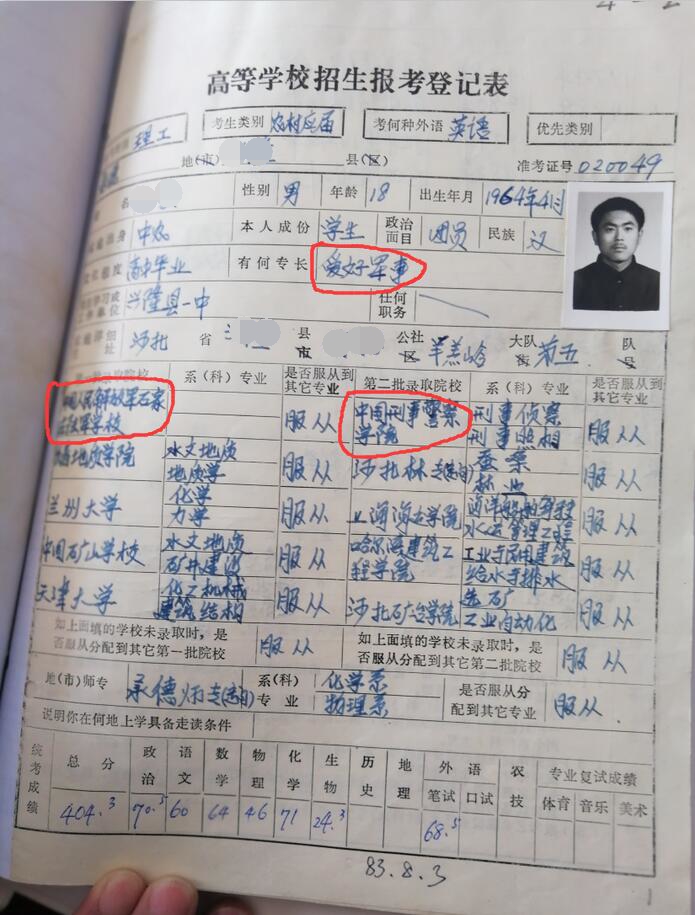 高等学校招生报考登记表
理工 考生类别 农村应届 考何种外语 英语 优先类别
地(市) 县(区) 准考证号 020049
名 性别 男 年龄 18 出生年月 1964年4月
出身 中农 本人成份 学生 政治面目 团员 民族 汉
程度 高中毕业 有何专长 爱好军事
兴隆县一中 任何职务
河北 省 县市 公社区 羊羔峪 大队街 第五 队号
录取院校 系(科)专业 是否服从到其它专业 第二批录取院校 系(科)专业 是否服从到其它专业
中国人民解放军石家庄陆军学校 服从 中国刑事警察学院 刑事侦察 刑事照相 服从
地质学院 水文地质 地质学 服从 河北林专 蚕桑 林业 服从
兰州大学 化学 力学 服从 上海海运学院 水运管理工程 服从
中国矿山学校 水文地质 矿井建设 服从 哈尔滨建筑工程学院 工业与民用建筑 给水与排水 服从
天津大学 化工机械 建筑结构 服从 河北矿冶学院 选矿 工业自动化 服从
如上面填的学校未录取时,是否服从分配到其它第一批院校 服从 如上面填的学校未录取时,是否服从分配到其它第二批院校 服从
地(市)师专 承德师专 系(科)专业 化学系 物理系 是否服从分配到其它专业 服从
说明你在何地上学具备走读条件
统考成绩 总分 政治 语文 数学 物理 化学 生物 历史 地理 外语 农技 专业复试成绩
笔试 口试 体育 音乐 美术
404.3 70.5 60 64 46 71 24.3 68.5
83.8.3